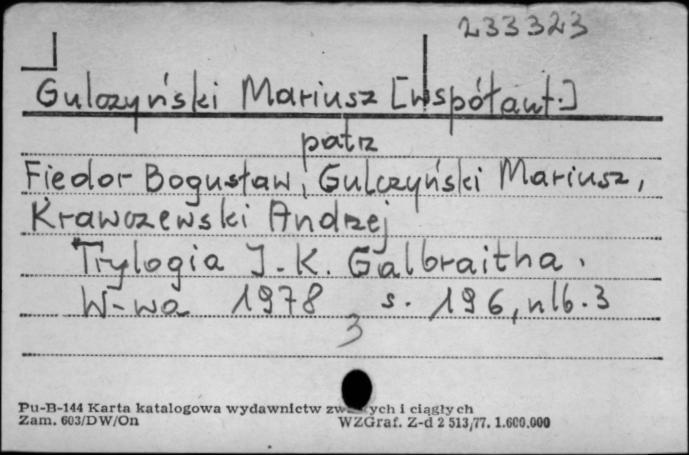 233323
Gulczyński Mariusz [współaut.]
patrz
Fiedor Bogusław, Gulczyński Mariusz,
Krawczewski Andrzej
Trylogia J.K. Galbraitha.
W-wa 1978 s. 196, nlb. 3
3
Pu-B-144 Karta katalogowa wydawnictw zwartych i ciągłych
Zam. 603/DW/On WZGraf. Z-d 2 513/77. 1.600.000